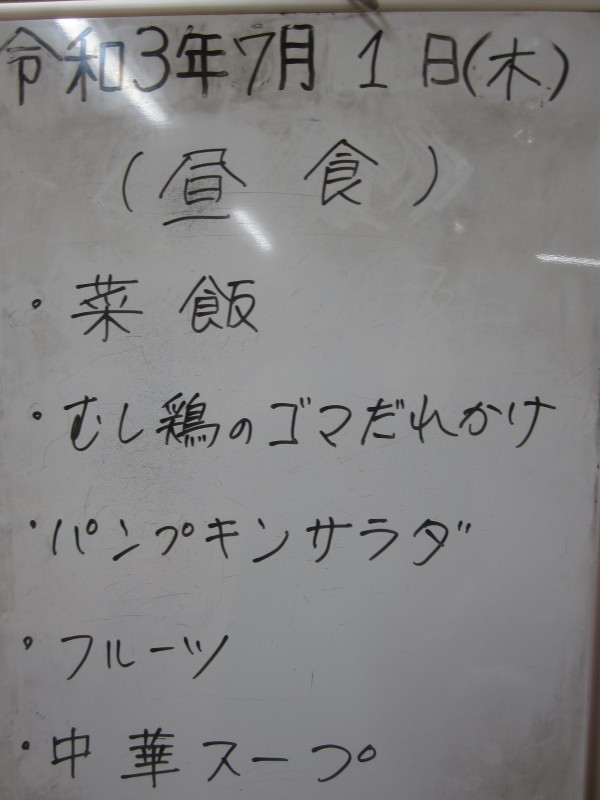 令和3年7月1日(木)
(昼食)
・菜飯
・むし鶏のゴマだれかけ
・パンプキンサラダ
・フルーツ
・中華スープ